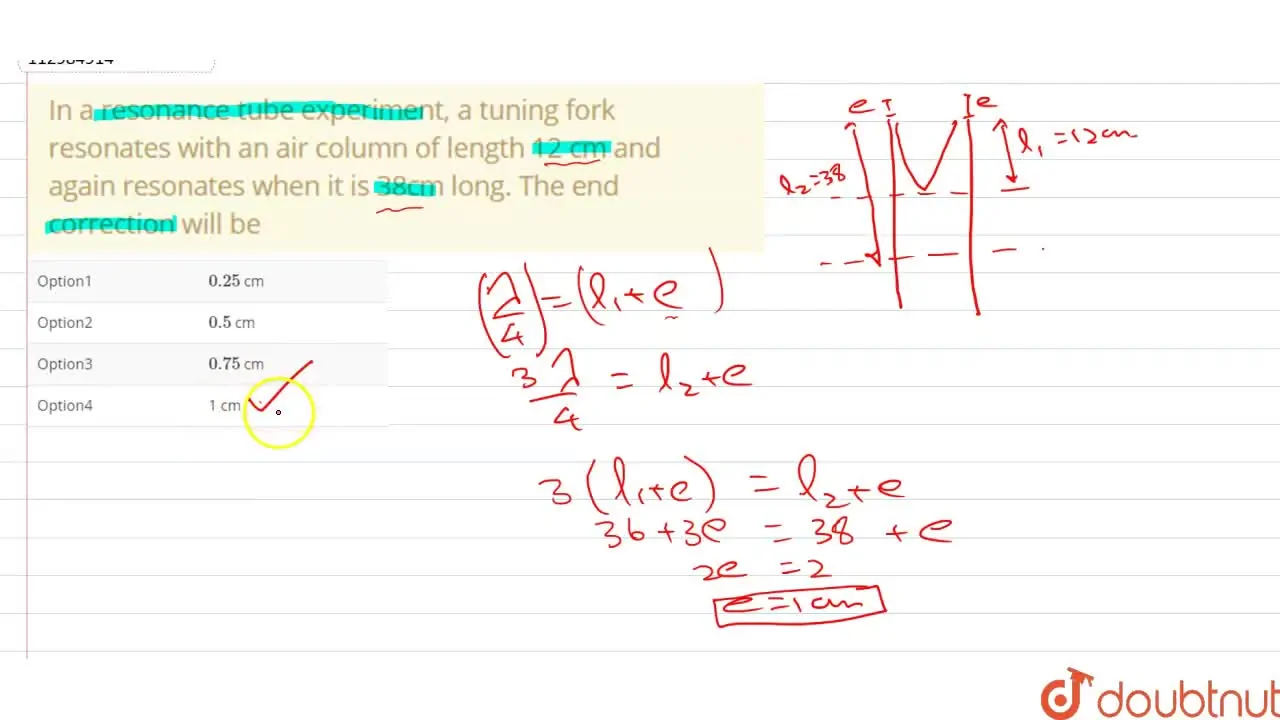 In a resonance tube experiment, a tuning fork
resonates with an air column of length 12 cm and
again resonates when it is 38cm long. The end
correction will be
Option1 0.25 cm
Option2 0.5 cm
Option3 0.75 cm
Option4 1 cm
e I I e
l₁ = 12 cm
l₂ = 38
(λ/4) = (l₁ + e)
3λ/4 = l₂ + e
3 (l₁ + e) = l₂ + e
36 + 3e = 38 + e
2e = 2
e = 1 cm
doubtnut